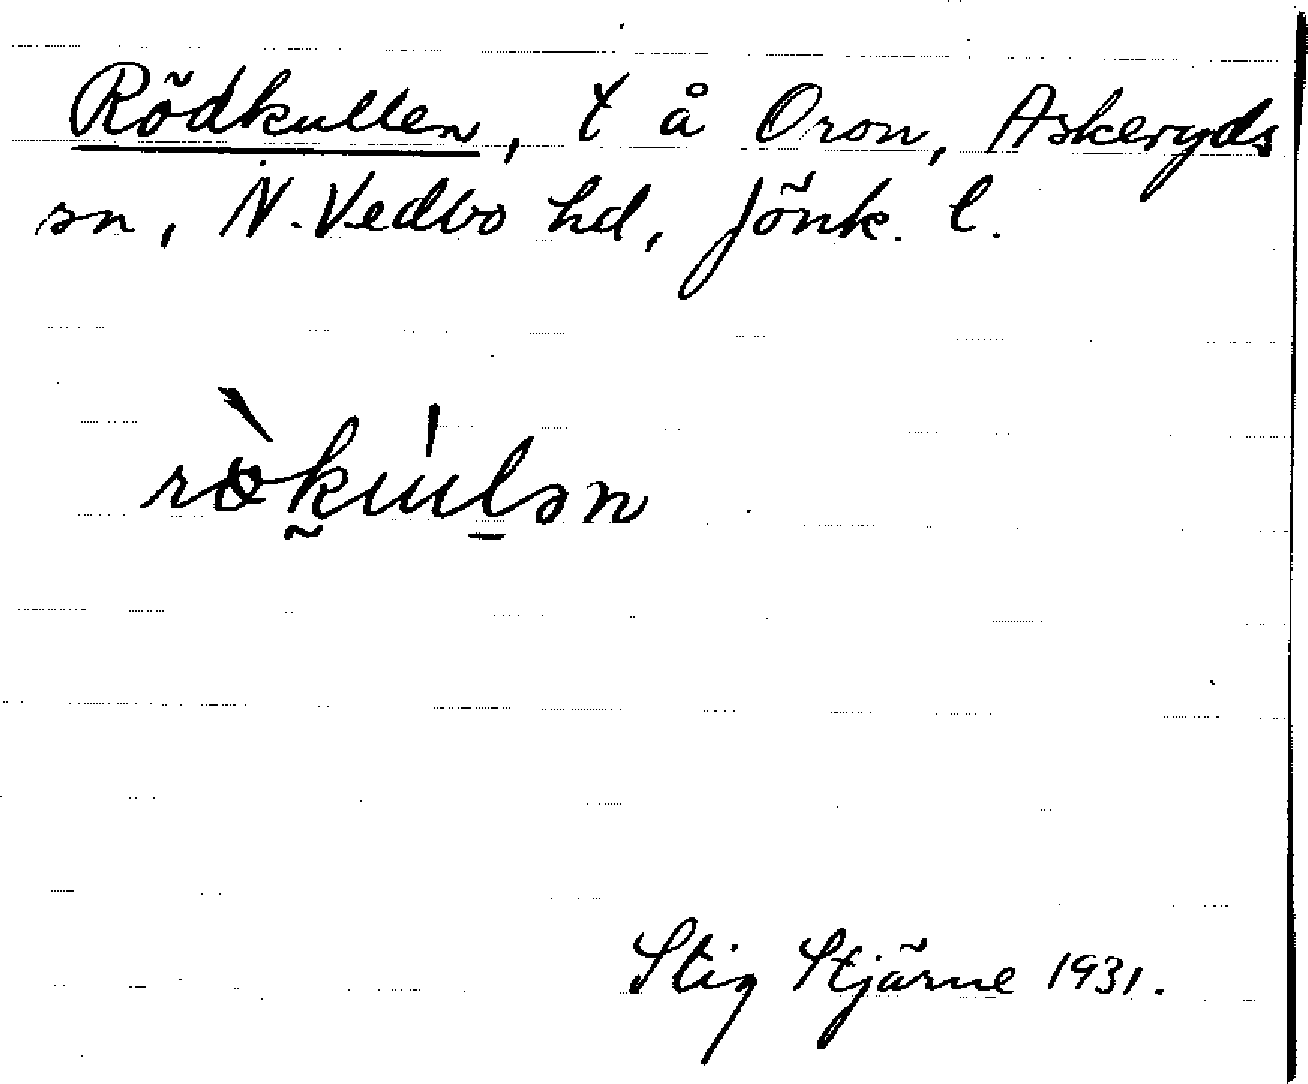 Rödkullen, t å Oron, Askeryds
sn, N. Vedbo hd, Jönk. l.
Stig Stjärne 1931.